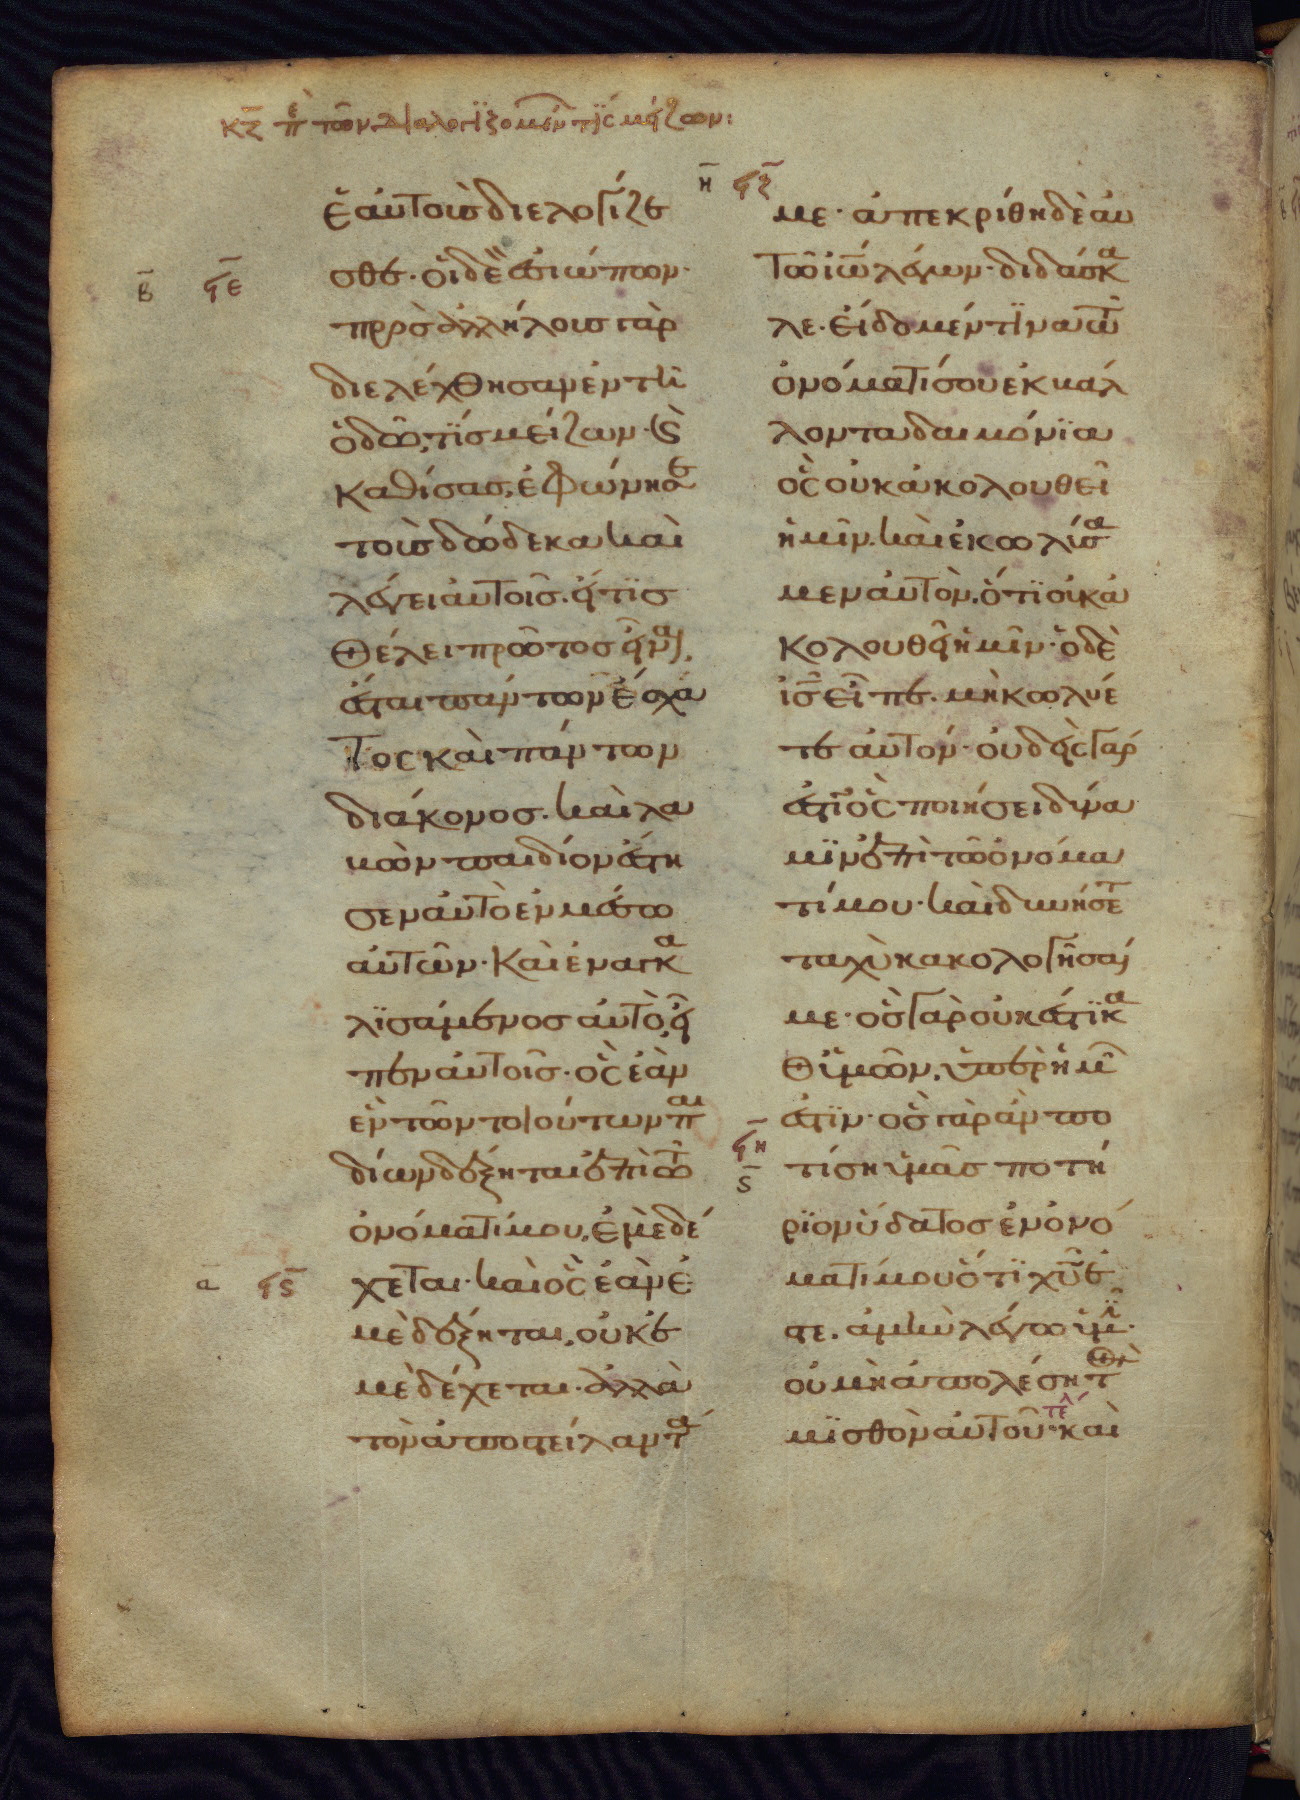 κζ πε των διαλογϊζομένων τίς μείζων:
ἑαυτοὺσ διελογίζε
β ϙε σθε· οἱ δὲ ἐσιώπων·
πρὸσ ἀλλήλουσ γὰρ
διελέχθησαν ἐν τῆ
ὁδῶ, τίσ μείζων· καὶ
καθίσασ, ἐφώνησε
τοὺσ δώδεκα καὶ
λέγει αὐτοῖσ. εἴ τϊσ
θέλει πρῶτοσ εἶναι,
ἔσται πάντων ἔσχα
τος καὶ πάντων
διάκονοσ. καὶ λα
βὼν παιδίον ἔστη
σεν αὐτὸ ἐν μέσω
αὐτῶν· καὶ ἐναγκα
λϊσάμενοσ αὐτὸ, εἶ
πεν αὐτοῖσ· ὃς ἐὰν
ἓν τῶν τοιούτων παι
δίων δέξηται ἐπὶ τῶ
ὀνόματί μου, ἐμὲ δέ
α ϙϛ χεται· καὶ ὃς ἐὰν ἐ
μὲ δέξηται, οὐκ ἐ
μὲ δέχεται· ἀλλὰ
τὸν ἀποστείλαντά
η ϙζ
με· ἀπεκρίθη δὲ αυ
τῶ ὁ ἰω λέγων· διδάσκα
λε· εἴδομέν τϊνα ἐν τῶ
ὀνόματί σου ἐκβάλ
λοντα δαιμόνϊα
ὃς οὐκ ἀκολουθεῖ
ἡμῖν. καὶ ἐκωλύσα
μεν αὐτὸν, ὅτϊ οὐκ ἀ
κολουθεῖ ἡμῖν· ὁ δὲ
ις εἶπε. μὴ κωλύε
τε αὐτόν· οὐδεὶς γάρ
ἐστϊν ὃς ποιήσει δύνα
μϊν ἐπὶ τῶ ὀνόμα
τί μου· καὶ δυνήσετ
ταχὺ κακολογῆσαί
με· ὃσ γὰρ οὐκ ἔστϊ κα
θ ὑμῶν, ὑπὲρ ἡμῶ
ἐστϊν· ὃσ γὰρ ἂν πο
ϙη ϛ τίση ὑμᾶσ ποτή
ρϊον ὕδατοσ ἐν ὀνό
ματί μου ὅτϊ χυ ἐ
στε. ἀμὴν λέγω ὑμῖ·
οὐ μὴ ἀπολέση τὸν
μϊσθὸν αὐτοῦ· τελ καὶ